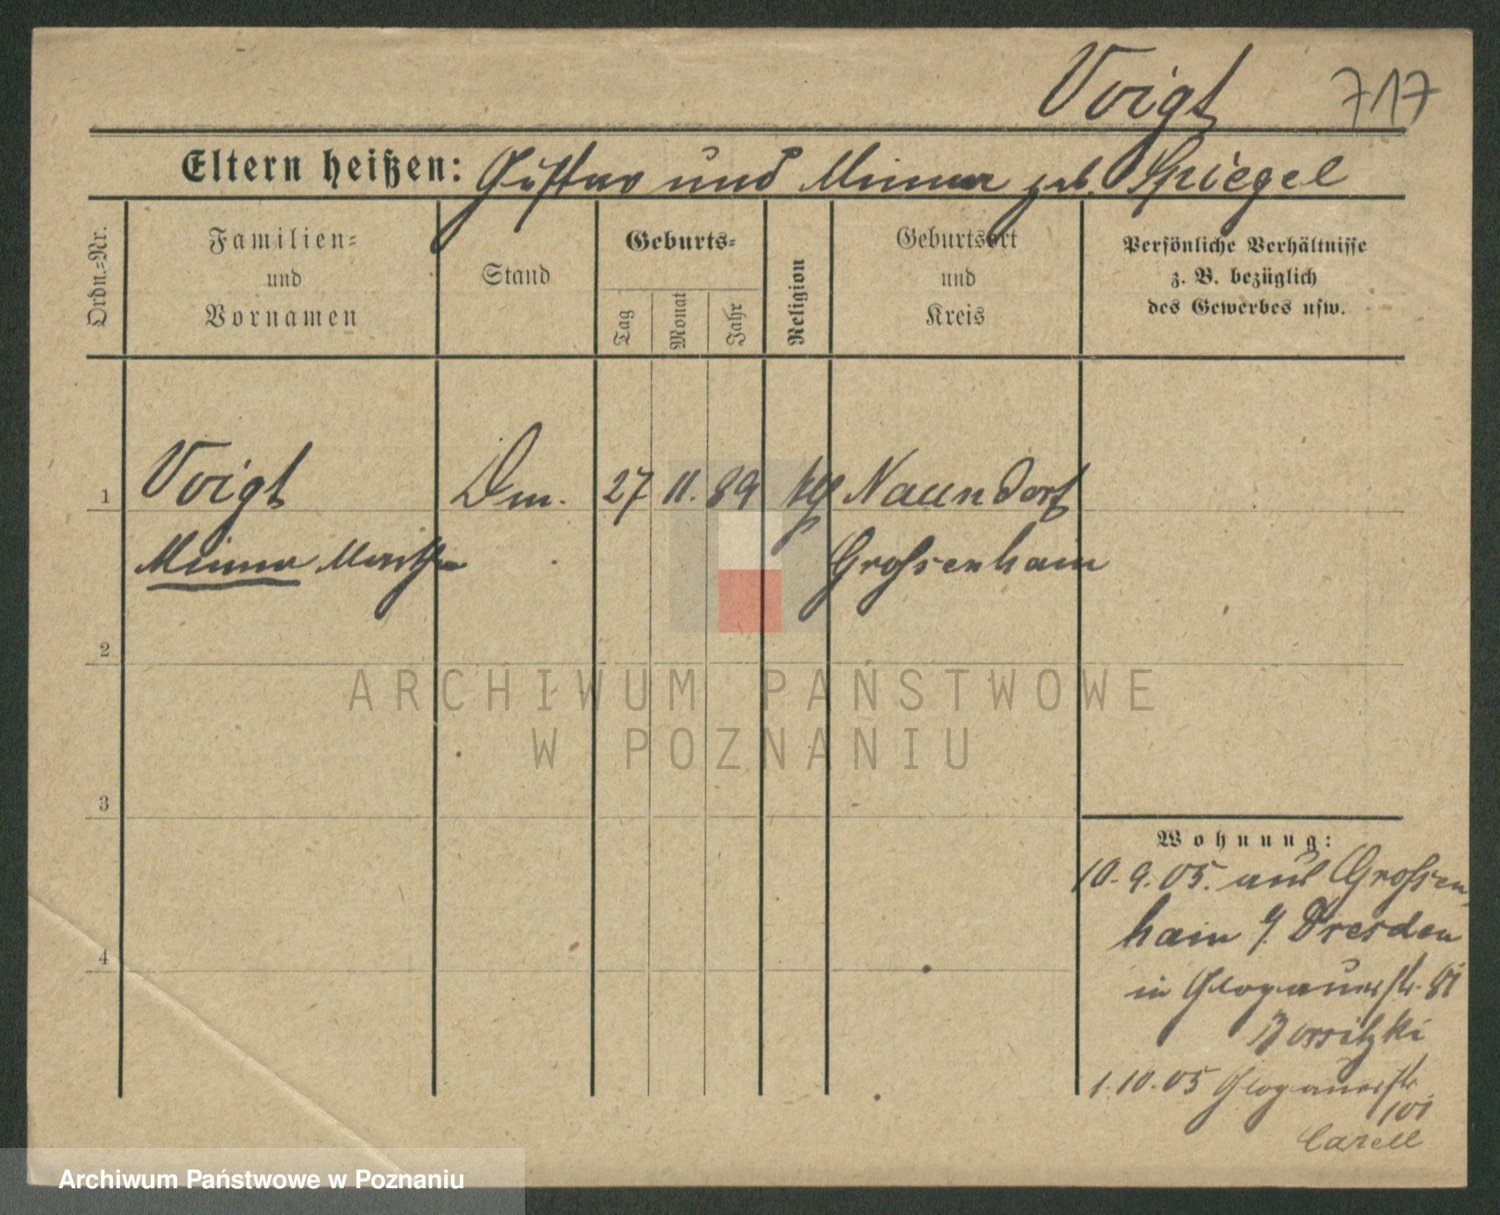 Voigt 717
Eltern heißen: Gustav und Minna geb. Spiegel
Ordn.=Nr.
Familien=
und
Vornamen
Stand
Geburts=
Tag
Monat
Jahr
Religion
Geburtsort
und
Kreis
Persönliche Verhältnisse
z. B. bezüglich
des Gewerbes usw.
1 Voigt Dm. 27 11. 89 Naundorf
Minna Martha Grossenhain
2
3
4
ARCHIWUM PAŃSTWOWE
W POZNANIU
Wohnung:
10.9.05. aus Grossen
hain b/ Dresden
in Glogauerstr. 81
1.10.05 Glogauerstr.
101
Carell
Archiwum Państwowe w Poznaniu